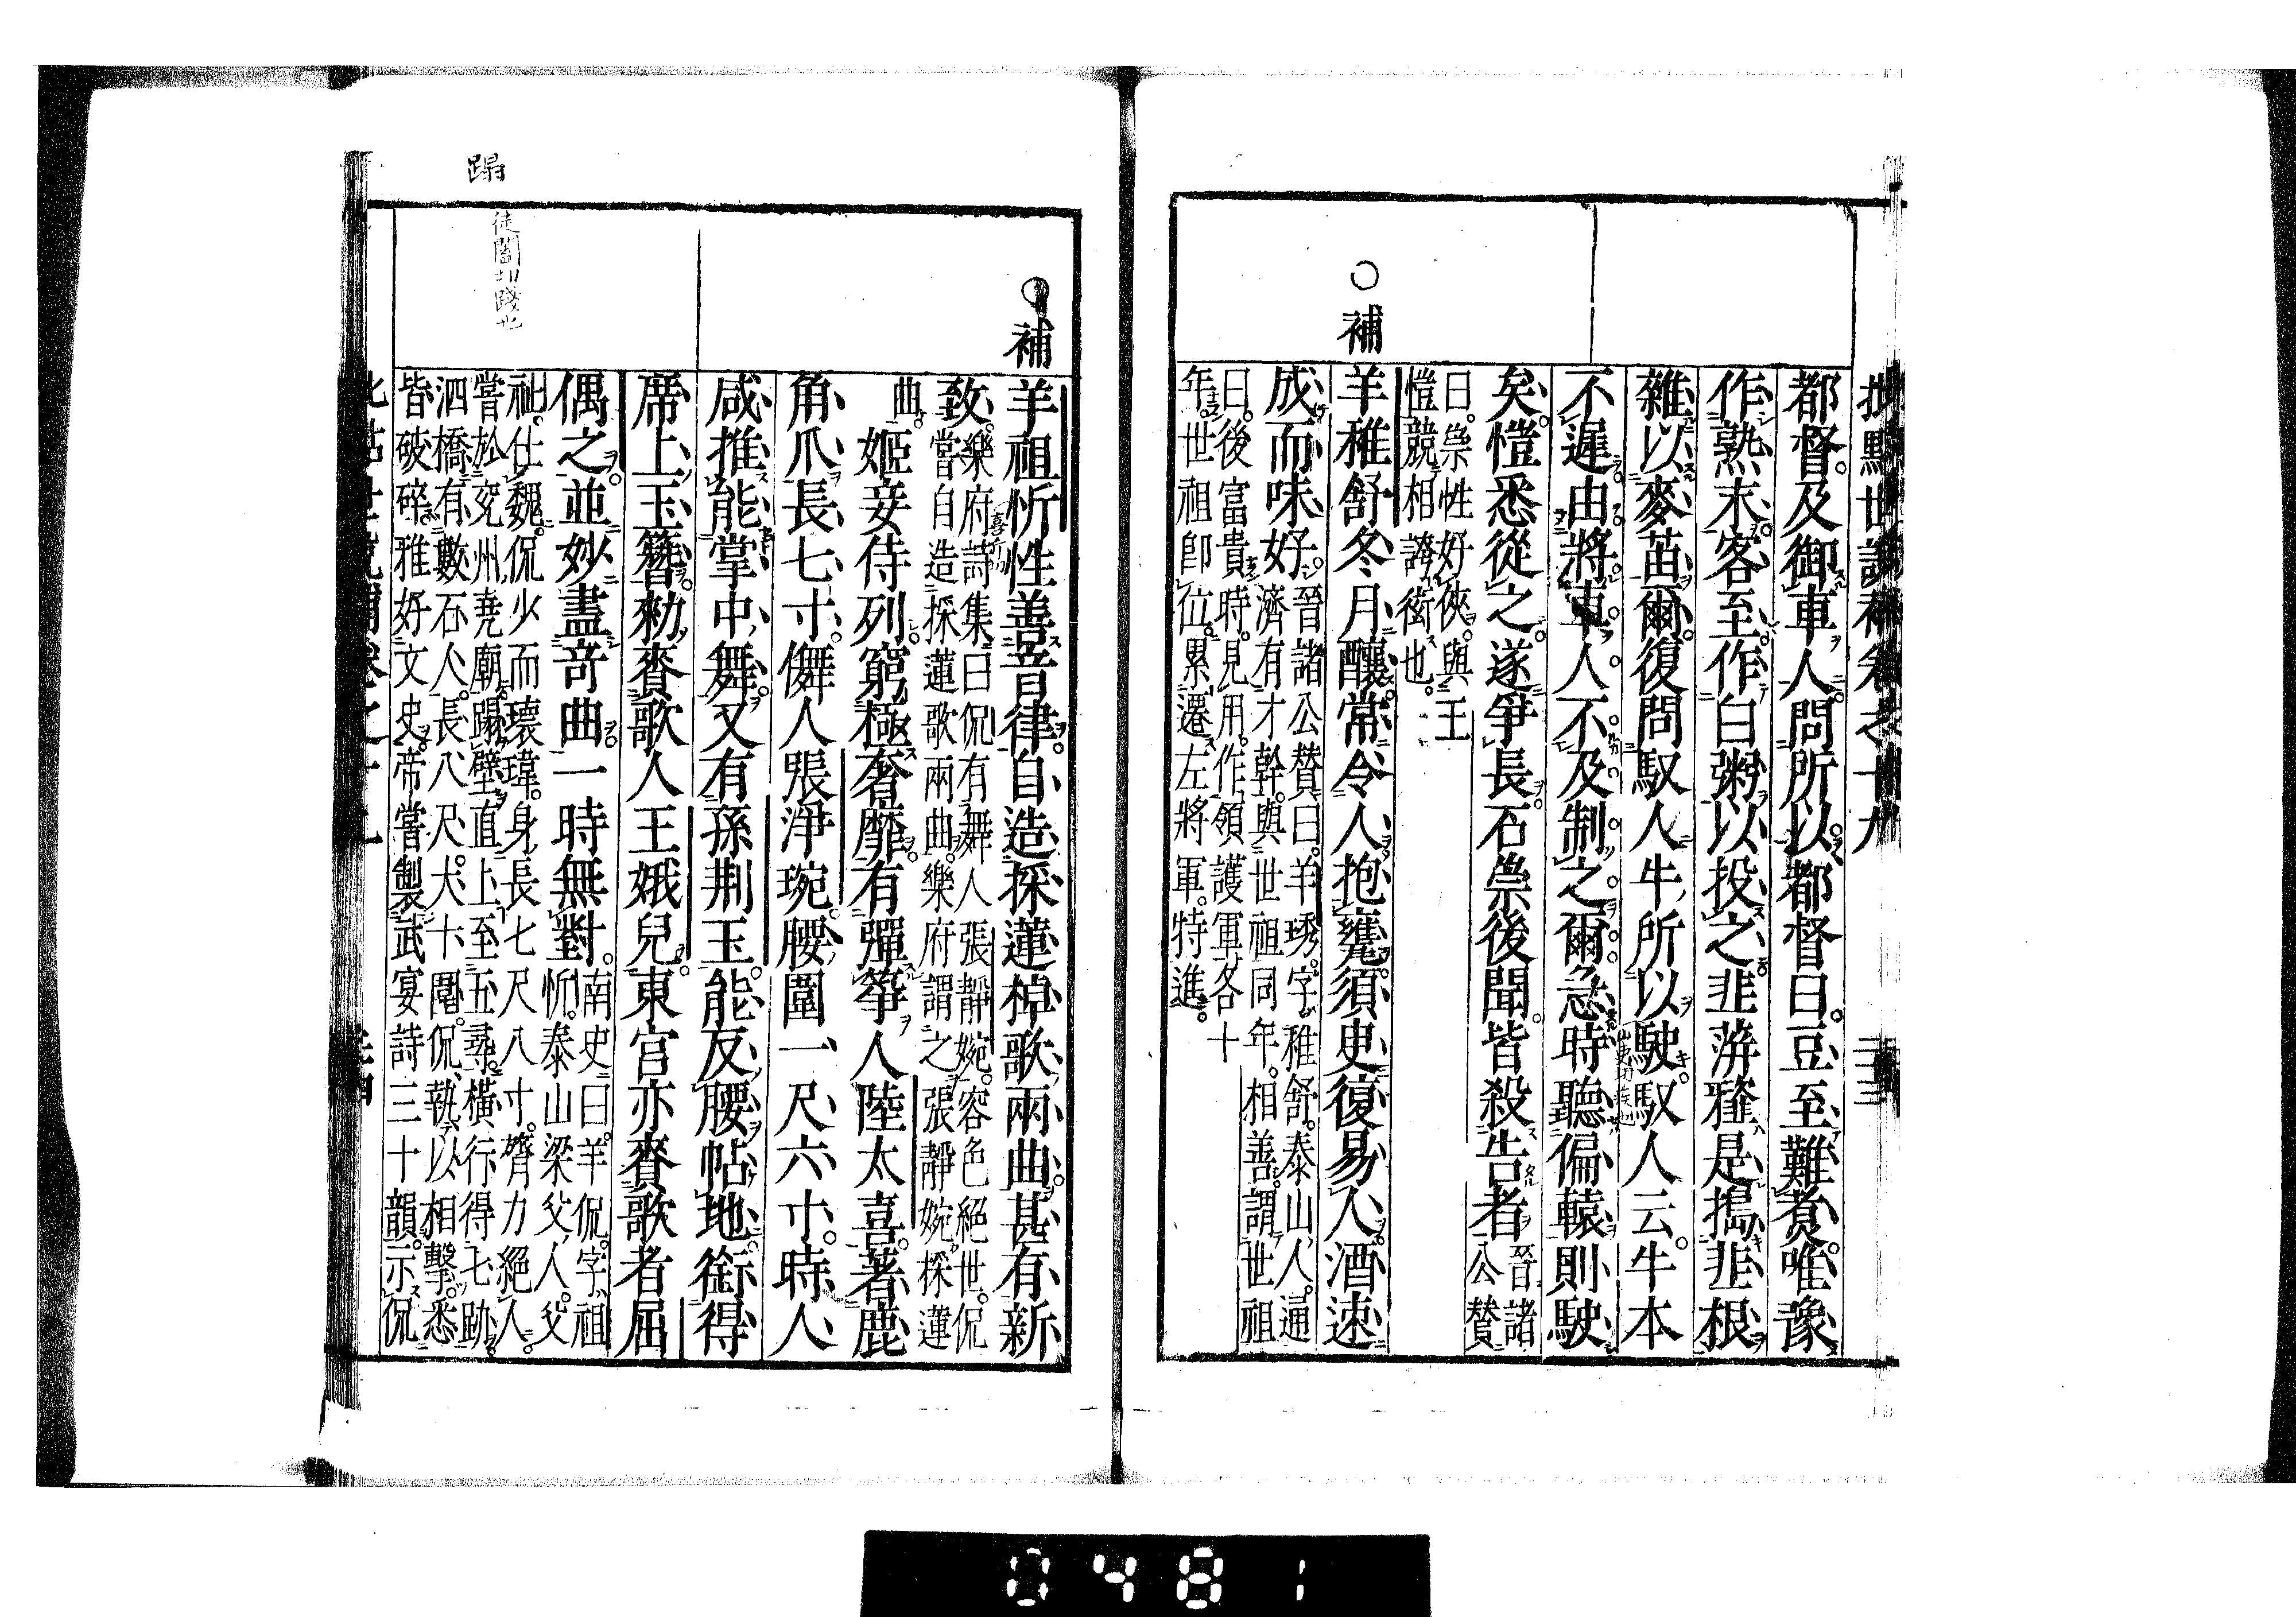 都督。及御車人。問所以。都督曰。豆至難煑。唯豫
作熟末。客至。作白粥以投之。韭蓱虀是搗韭根
雜以麥苗爾。復問馭人牛所以駛。馭人云。牛本
不遲。由將車人不及制之爾。急時聽偏轅則駛
矣。愷悉從之。遂爭長。石崇後聞。皆殺告者。
晉諸
公贊
曰。崇性好俠。與王
愷競相誇衒也。
補
羊稚舒冬月釀。常令人抱甕。須臾復易人。酒速
成而味好。
晉諸公贊曰。羊琇。字稚舒。泰山人。通
濟有才幹。與世祖同年。相善。謂世祖
曰。後富貴時。見用。作領護軍。各十
年。世祖即位。累遷左將軍。特進。
補
羊祖忻性善音律。自造採蓮棹歌兩曲。甚有新
致。
樂府詩集曰侃有舞人張靜婉。容色絕世。侃
嘗自造採蓮歌兩曲。樂府謂之張靜婉採蓮
曲。
姬妾侍列。窮極奢靡。有彈箏人陸太喜。著鹿
角爪長七寸。儛人張淨琬。腰圍一尺六寸。時人
咸推能掌中舞。又有孫荆玉。能反腰帖地。銜得
席上玉簪。勑賚歌人王娥兒。東宮亦賚歌者屈
偶之。並妙盡奇曲。一時無對。
南史曰。羊侃。字祖
忻。泰山梁父人。父
祉。仕魏。侃少而瓌瑋。身長七尺八寸。膂力絕人。
嘗於兗州堯廟蹋壁。直上至五尋。橫行得七跡。
泗橋有數石人。長八尺。大十圍。侃執以相擊。悉
皆破碎。雅好文史。帝嘗製武宴詩三十韻。示侃
蹋
徒闔切踐也
0481